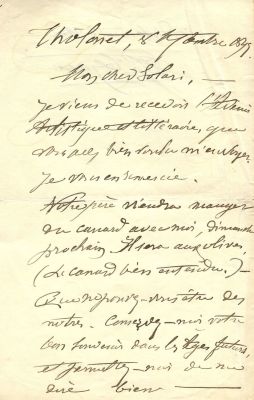 Tholonet, 8 septembre 1897,
Mon cher Solari, —
je viens de recevoir l'Avenir
Artistique et Littéraire, que
vous avez bien voulu m'envoyer.
Je vous en remercie.
Notre père viendra manger
du canard avec moi, dimanche
prochain. Il sera aux olives.
(Le canard bien entendu.) —
Que ne pouvez-vous être des
nôtres. Conservez-moi votre
bon souvenir dans les âges futurs,
et permettez-moi de me
dire bien —